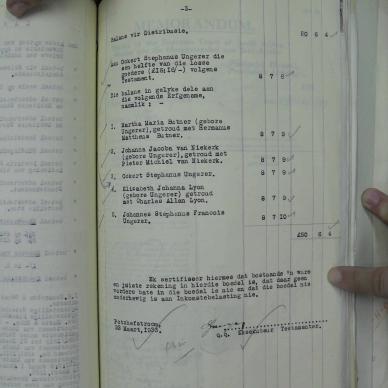 -3-
MEMORANDUM.
Balans vir Distribusie. 50 6 4
Aan Ockert Stephanus Ungerer die
een helfte van die losse
goedere (£16:16/-) volgens
Testament. 8 7 8
Die balans in gelyke dele aan
die volgende Erfgename,
namlik : -
1. Martha Maria Batner (gebore
Ungerer), getroud met Hermanus
Mattheus Batner. 8 7 9
2. Johanna Jacoba van Niekerk
(gebore Ungerer), getroud met
Pieter Michiel van Niekerk. 8 7 9
3. Ockert Stephanus Ungerer. 8 7 9
4. Elizabeth Johanna Lyon
(gebore Ungerer) getroud
met Charles Allen Lyon. 8 7 9
5. Johannes Stephanus Francois
Ungerer. 8 7 10
£50 6 4
Ek sertifiseer hiermee dat bostaande 'n ware
en juiste rekening in hierdie boedel is, dat daar geen
verdere bate in die boedel is nie en dat die boedel nie
onderhewig is aan Inkomstebelasting nie.
Potchefstroom,
22 Maart, 1933.
q.q. Eksekuteur Testamentêr.